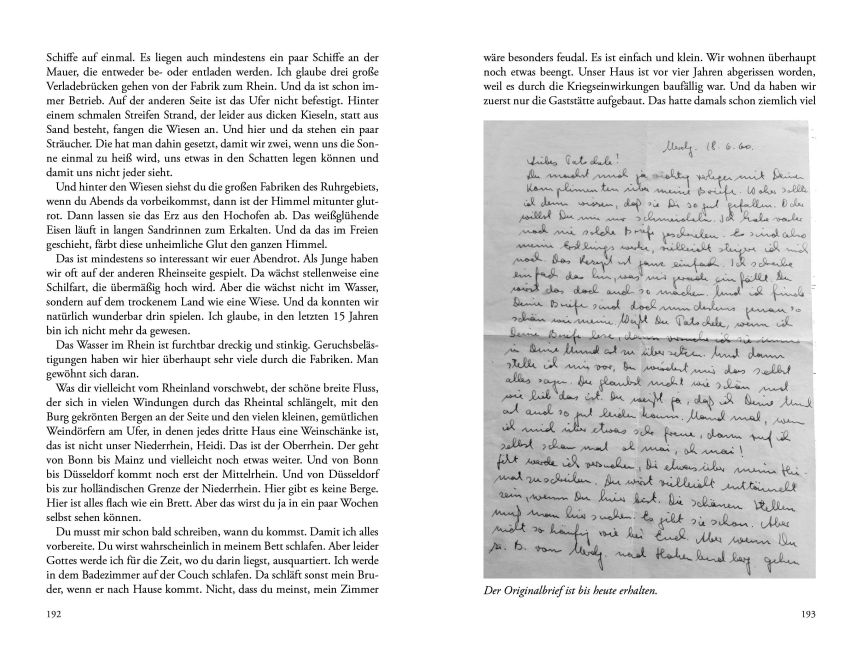 Schiffe auf einmal. Es liegen auch mindestens ein paar Schiffe an der
Mauer, die entweder be- oder entladen werden. Ich glaube drei große
Verladebrücken gehen von der Fabrik zum Rhein. Und da ist schon im-
mer Betrieb. Auf der anderen Seite ist das Ufer nicht befestigt. Hinter
einem schmalen Streifen Strand, der leider aus dicken Kieseln, statt aus
Sand besteht, fangen die Wiesen an. Und hier und da stehen ein paar
Sträucher. Die hat man dahin gesetzt, damit wir zwei, wenn uns die Son-
ne einmal zu heiß wird, uns etwas in den Schatten legen können und
damit uns nicht jeder sieht.
Und hinter den Wiesen siehst du die großen Fabriken des Ruhrgebiets,
wenn du Abends da vorbeikommst, dann ist der Himmel mitunter glut-
rot. Dann lassen sie das Erz aus den Hochofen ab. Das weißglühende
Eisen läuft in langen Sandrinnen zum Erkalten. Und da das im Freien
geschieht, färbt diese unheimliche Glut den ganzen Himmel.
Das ist mindestens so interessant wir euer Abendrot. Als Junge haben
wir oft auf der anderen Rheinseite gespielt. Da wächst stellenweise eine
Schilfart, die übermäßig hoch wird. Aber die wächst nicht im Wasser,
sondern auf dem trockenem Land wie eine Wiese. Und da konnten wir
natürlich wunderbar drin spielen. Ich glaube, in den letzten 15 Jahren
bin ich nicht mehr da gewesen.
Das Wasser im Rhein ist furchtbar dreckig und stinkig. Geruchsbeläs-
tigungen haben wir hier überhaupt sehr viele durch die Fabriken. Man
gewöhnt sich daran.
Was dir vielleicht vom Rheinland vorschwebt, der schöne breite Fluss,
der sich in vielen Windungen durch das Rheintal schlängelt, mit den
Burg gekrönten Bergen an der Seite und den vielen kleinen, gemütlichen
Weindörfern am Ufer, in denen jedes dritte Haus eine Weinschänke ist,
das ist nicht unser Niederrhein, Heidi. Das ist der Oberrhein. Der geht
von Bonn bis Mainz und vielleicht noch etwas weiter. Und von Bonn
bis Düsseldorf kommt noch erst der Mittelrhein. Und von Düsseldorf
bis zur holländischen Grenze der Niederrhein. Hier gibt es keine Berge.
Hier ist alles flach wie ein Brett. Aber das wirst du ja in ein paar Wochen
selbst sehen können.
Du musst mir schon bald schreiben, wann du kommst. Damit ich alles
vorbereite. Du wirst wahrscheinlich in meinem Bett schlafen. Aber leider
Gottes werde ich für die Zeit, wo du darin liegst, ausquartiert. Ich werde
in dem Badezimmer auf der Couch schlafen. Da schläft sonst mein Bru-
der, wenn er nach Hause kommt. Nicht, dass du meinst, mein Zimmer
192
wäre besonders feudal. Es ist einfach und klein. Wir wohnen überhaupt
noch etwas beengt. Unser Haus ist vor vier Jahren abgerissen worden,
weil es durch die Kriegseinwirkungen baufällig war. Und da haben wir
zuerst nur die Gaststätte aufgebaut. Das hatte damals schon ziemlich viel
18.6.60.
Liebes Patschele!
Du machst mich ja richtig verlegen mit Deinen
Komplimenten über meine Briefe. Woher sollte
ich denn wissen, daß sie Dir so gut gefallen. Oder
willst Du mir nur schmeicheln. Ich habe vorher
noch nie solche Briefe geschrieben. Es sind also
meine Erstlingswerke, vielleicht steiger ich mich
noch. Das Rezept ist ganz einfach. Ich schreibe
einfach das hin, was mir gerade einfällt. Du
wirst das doch auch so machen. Und ich finde
Deine Briefe sind doch mindestens genau so
schön wie meine. Weißt Du Patschele, wenn ich
Deine Briefe lese, dann versuche ich sie immer
in Deine Mundart zu übersetzen. Und dann
stelle ich mir vor, Du würdest mir das selbst
alles sagen. Du glaubst nicht wie schön und
wie lieb das ist. Du weißt ja, daß ich Deine Mund
art auch so gut leiden kann. Manchmal, wenn
ich mich über etwas sehr freue, dann ruf ich
selbst schon mal oh mai, oh mai!
Jetzt werde ich versuchen, Dir etwas über meine Hei
mat zu schreiben. Du wirst vielleicht enttäuscht
sein, wenn Du hier bist. Die schönen Stellen
muß man hier suchen. Es gibt sie schon. Aber
nicht so häufig wie bei Euch. Aber wenn Du
z. B. von nach gehen
Der Originalbrief ist bis heute erhalten.
193